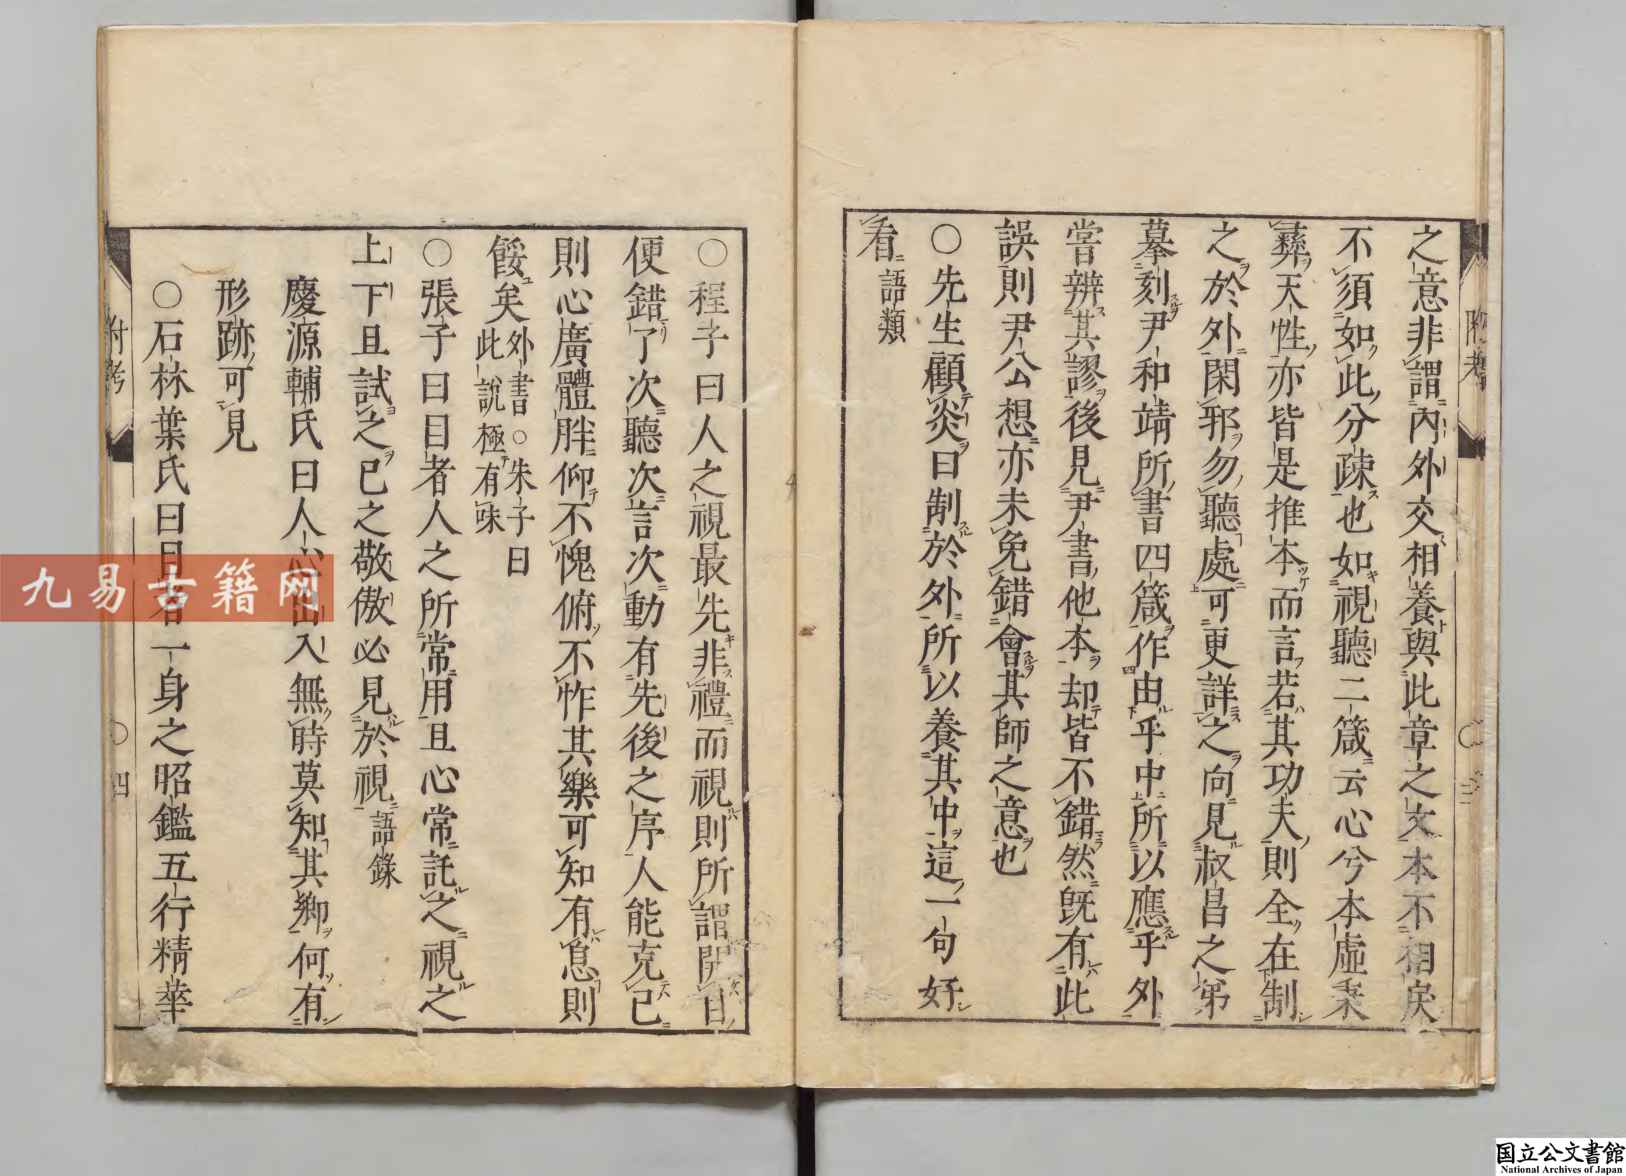 之意非謂內外交相養與此章之文本不相戾
不須如此分疎也如視聽二箴云心兮本虛秉
彝天性亦皆是推本而言若其功夫則全在制
之於外閑邪勿聽處可更詳之向見叔昌之弟
摹刻尹和靖所書四箴作由乎中所以應乎外
嘗辨其謬後見尹書他本却皆不錯然旣有此
誤則尹公想亦未免錯會其師之意也
○先生顧炎曰制於外所以養其中這一句好
看語類
附考
○程子曰人之視最先非禮而視則所謂開目
便錯了次聽次言次動有先後之序人能克己
則心廣體胖仰不愧俯不怍其樂可知有息則
餒矣外書○朱子曰
此說極有味
○張子曰目者人之所常用且心常託之視之
上下且試之己之敬傲必見於視語錄
慶源輔氏曰人心出入無時莫知其鄉何有
形跡可見
○石林葉氏曰目者一身之昭鑑五行精華
附考
○四
九易古籍网
国立公文書館
National Archives of Japan